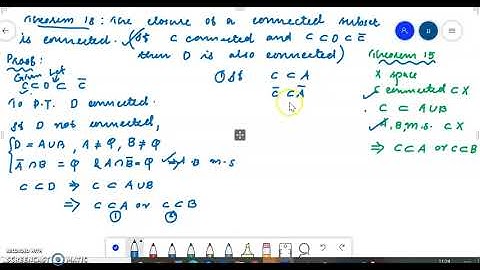 Theorem 18: The closure of a connected subset
is connected. (If C connected and C ⊂ D ⊂ C̅
then D is also connected)
Proof:
Given Let
C ⊂ D ⊂ C̅
To P.T. D connected.
If D not connected,
D = A∪B, A ≠ φ, B ≠ φ
A̅ ∩ B = φ & A ∩ B̅ = φ ⇒ A, B m.s
C ⊂ D ⇒ C ⊂ A∪B
⇒ C ⊂ A or C ⊂ B
① ②
① If C ⊂ A
C̅ ⊂ A̅
Theorem 15
X space
C connected ⊂ X
C ⊂ A∪B
A, B, m.s. ⊂ X
⇒ C ⊂ A or C ⊂ B
RECORDED WITH
SCREENCAST-O-MATIC